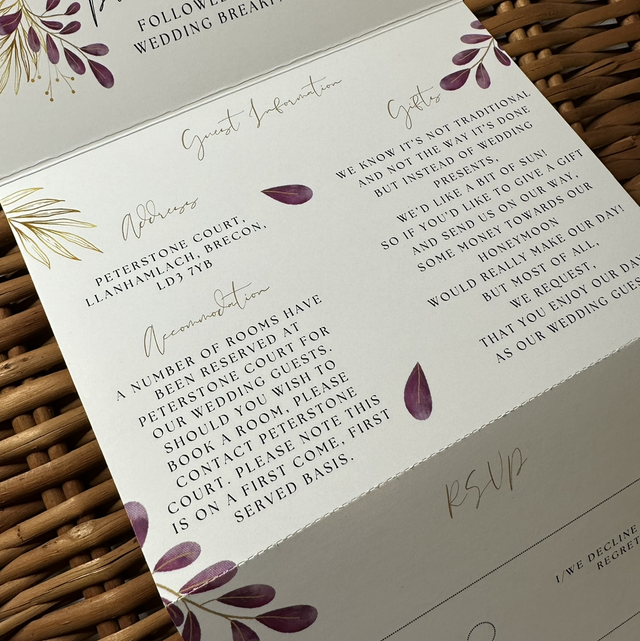 FOLLOWED
WEDDING BREAKF
Guest Information
Addresses
PETERSTONE COURT,
LLANHAMLACH, BRECON,
LD3 7YB
Accommodation
A NUMBER OF ROOMS HAVE
BEEN RESERVED AT
PETERSTONE COURT FOR
OUR WEDDING GUESTS.
SHOULD YOU WISH TO
BOOK A ROOM, PLEASE
CONTACT PETERSTONE
COURT. PLEASE NOTE THIS
IS ON A FIRST COME, FIRST
SERVED BASIS.
Gifts
WE KNOW IT'S NOT TRADITIONAL
AND NOT THE WAY IT'S DONE
BUT INSTEAD OF WEDDING
PRESENTS,
WE'D LIKE A BIT OF SUN!
SO IF YOU'D LIKE TO GIVE A GIFT
AND SEND US ON OUR WAY,
SOME MONEY TOWARDS OUR
HONEYMOON
WOULD REALLY MAKE OUR DAY!
BUT MOST OF ALL,
WE REQUEST,
THAT YOU ENJOY OUR DAY
AS OUR WEDDING GUES
RSVP
I/WE DECLINE
REGRET